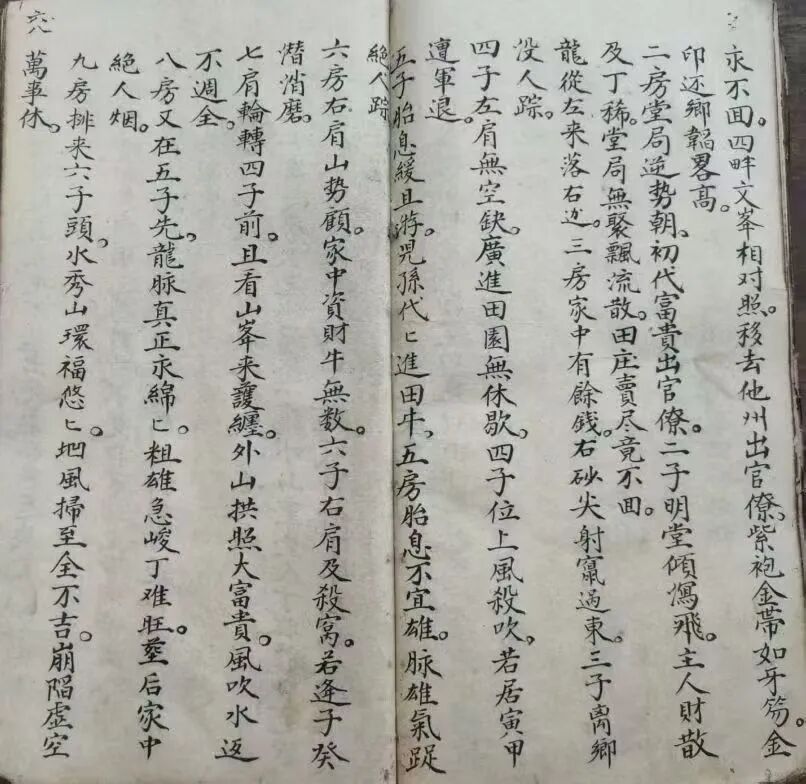 永不回。四畔文峯相对照。移去他州出官僚。紫袍金帶如牙笏。金
印还鄉韜畧高。
二房堂局逆势朝。初代富貴出官僚。二子明堂傾瀉飛。主人財散
及丁稀。堂局無聚飄流散。田庄賣尽竟不回。
龍從左来落右边。三房家中有餘錢。右砂尖射竄過東。三子离鄉
没人踪。
四子左肩無空缺。廣進田園無休歇。四子位上風殺吹。若居寅甲
遭軍退。
五子胎息緩且游。児孫代匕進田牛。五房胎息不宜雄。脉雄氣踀
絶人踪
六房右肩山势顧。家中資財牛無数。六子右肩及殺窩。若逢子癸
潛消磨。
七肩輪轉四子前。且看山峯来護纏。外山拱照大富貴。風吹水返
不週全。
八房又在五子先。龍脉真正永綿匕。粗雄急峻丁难旺。塟后家中
絶人烟。
九房排来六子頭。水秀山環福悠匕。地風掃至全不吉。崩陷虚空
萬事休。
六八